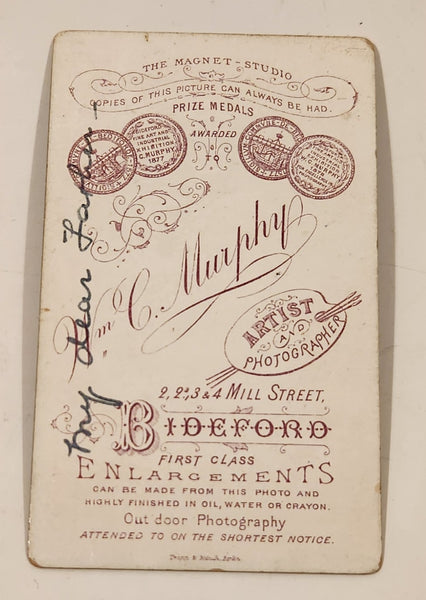 THE MAGNET-STUDIO
COPIES OF THIS PICTURE CAN ALWAYS BE HAD.
PRIZE MEDALS
AWARDED
TO
BIDEFORD
FINE ART AND
INDUSTRIAL
EXHIBITION
C. MURPHY
1877
Wm C. Murphy
ARTIST
AND
PHOTOGRAPHER
2, 2a, 3 & 4 MILL STREET,
BIDEFORD
FIRST CLASS
ENLARGEMENTS
CAN BE MADE FROM THIS PHOTO AND
HIGHLY FINISHED IN OIL, WATER OR CRAYON.
Out door Photography
ATTENDED TO ON THE SHORTEST NOTICE.
My dear